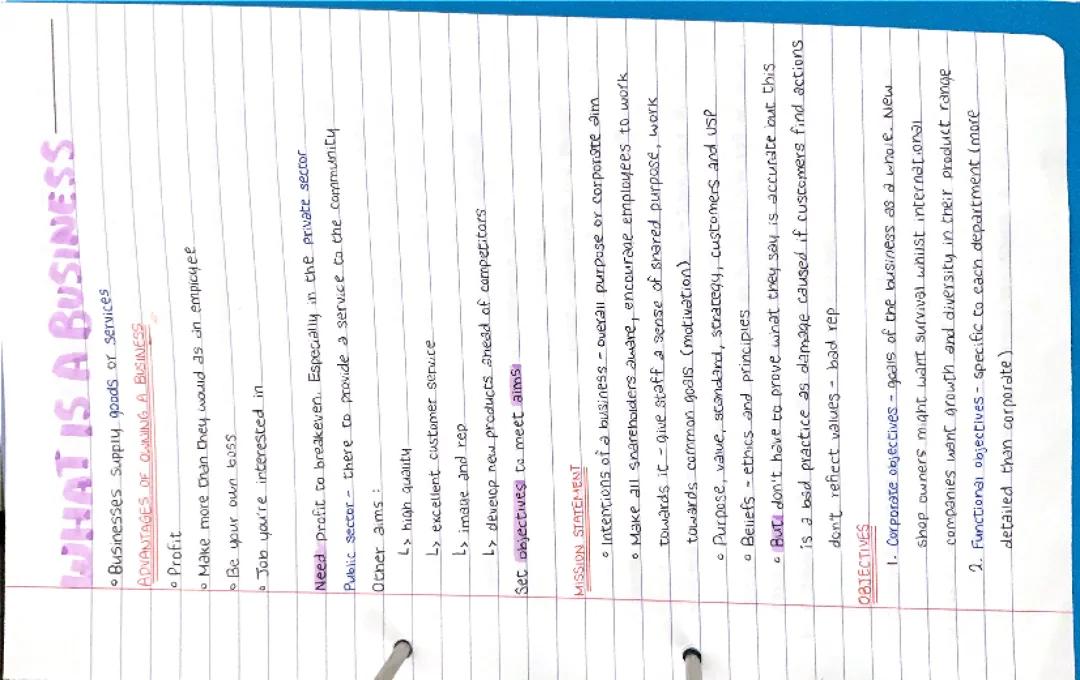 WHAT IS A BUSINESS
◦ Businesses supply goods or services
ADVANTAGES OF OWNING A BUSINESS
◦ Profit
◦ Make more than they would as an employee
◦ Be your own boss
◦ Job you're interested in
Need profit to breakeven. Especially in the private sector
Public sector - there to provide a service to the community
Other aims:
↳ high quality
↳ excellent customer service
↳ image and rep
↳ develop new products ahead of competitors
Set objectives to meet aims
MISSION STATEMENT
◦ Intentions of a business - overall purpose or corporate aim
◦ Make all shareholders aware, encourage employees to work
towards it - give staff a sense of shared purpose, work
towards common goals (motivation)
◦ Purpose, value, standard, strategy, customers and USP
◦ Beliefs - ethics and principles
◦ But don't have to prove what they say is accurate but this
is a bad practice as damage caused if customers find actions
don't reflect values - bad rep
OBJECTIVES
1. Corporate objectives - goals of the business as a whole. New
shop owners might want survival whilst international
companies want growth and diversity in their product range
2. Functional objectives - specific to each department (more
detailed than corporate)